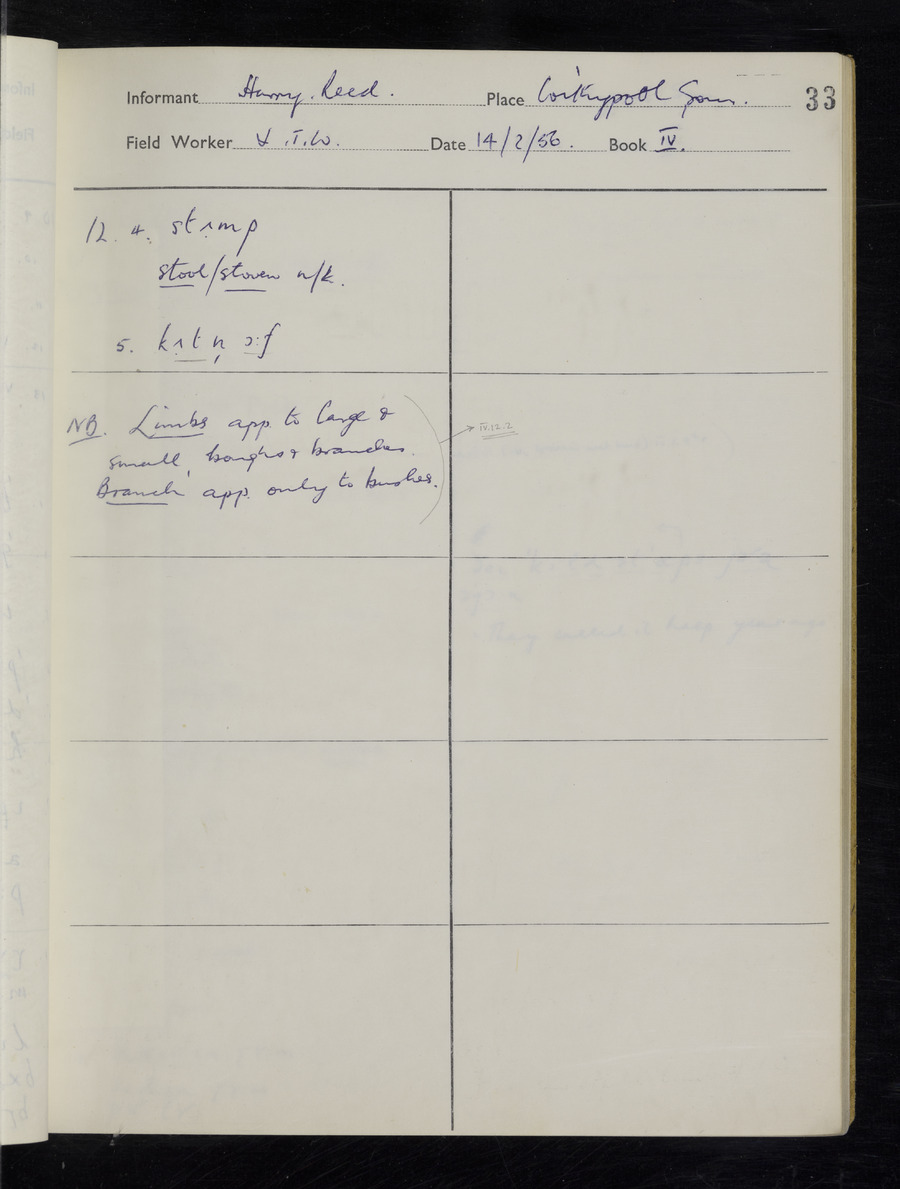 Informant Harry. Reed. Place Cock'ypool Som. 33
Field Worker T.W. Date 14/2/56. Book IV.
12. 4. stɪmp
stool/stoven n/k.
5. kʌt n̩ ɔːf
NB. Limbs app. to large &
small, boughs & branches.
Branch app. only to bushes.
IV.12.2